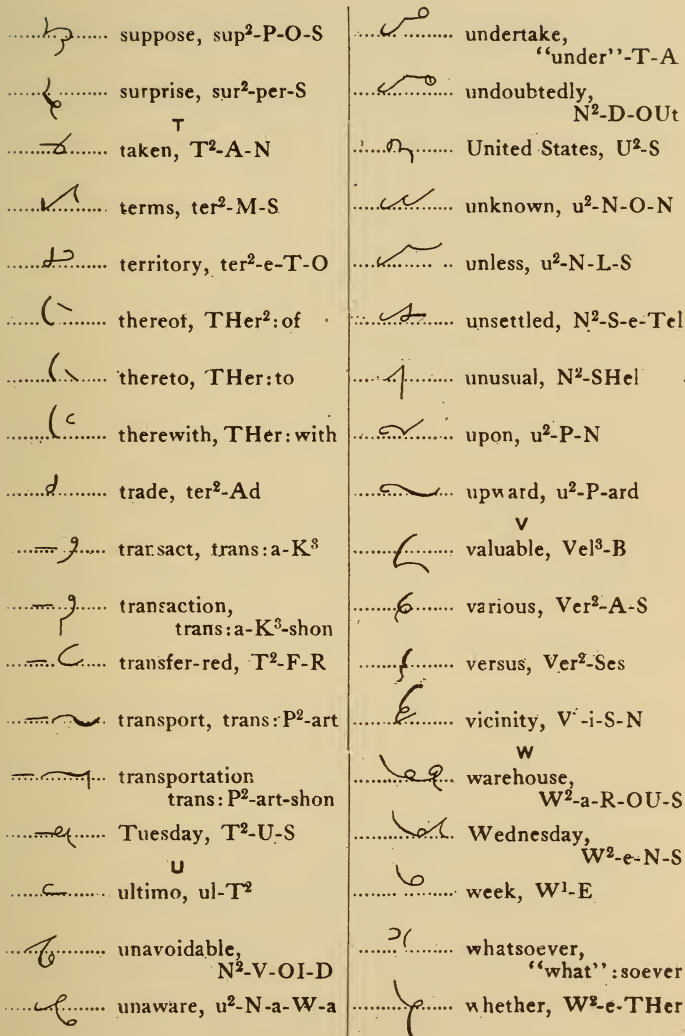 suppose, sup²-P-O-S
surprise, sur²-per-S
T
taken, T²-A-N
terms, ter²-M-S
territory, ter²-e-T-O
thereof, THer²:of
thereto, THer:to
therewith, THer:with
trade, ter²-Ad
transact, trans:a-K³
transaction,
trans:a-K³-shon
transfer-red, T²-F-R
transport, trans:P²-art
transportation
trans:P²-art-shon
Tuesday, T²-U-S
U
ultimo, ul-T²
unavoidable,
N²-V-OI-D
unaware, u²-N-a-W-a
undertake,
"under"-T-A
undoubtedly,
N²-D-OUt
United States, U²-S
unknown, u²-N-O-N
unless, u²-N-L-S
unsettled, N²-S-e-Tel
unusual, N²-SHel
upon, u²-P-N
upward, u²-P-ard
V
valuable, Vel³-B
various, Ver²-A-S
versus, Ver²-Ses
vicinity, V-i-S-N
W
warehouse,
W²-a-R-OU-S
Wednesday,
W²-e-N-S
week, W¹-E
whatsoever,
"what":soever
whether, W²-e-THer